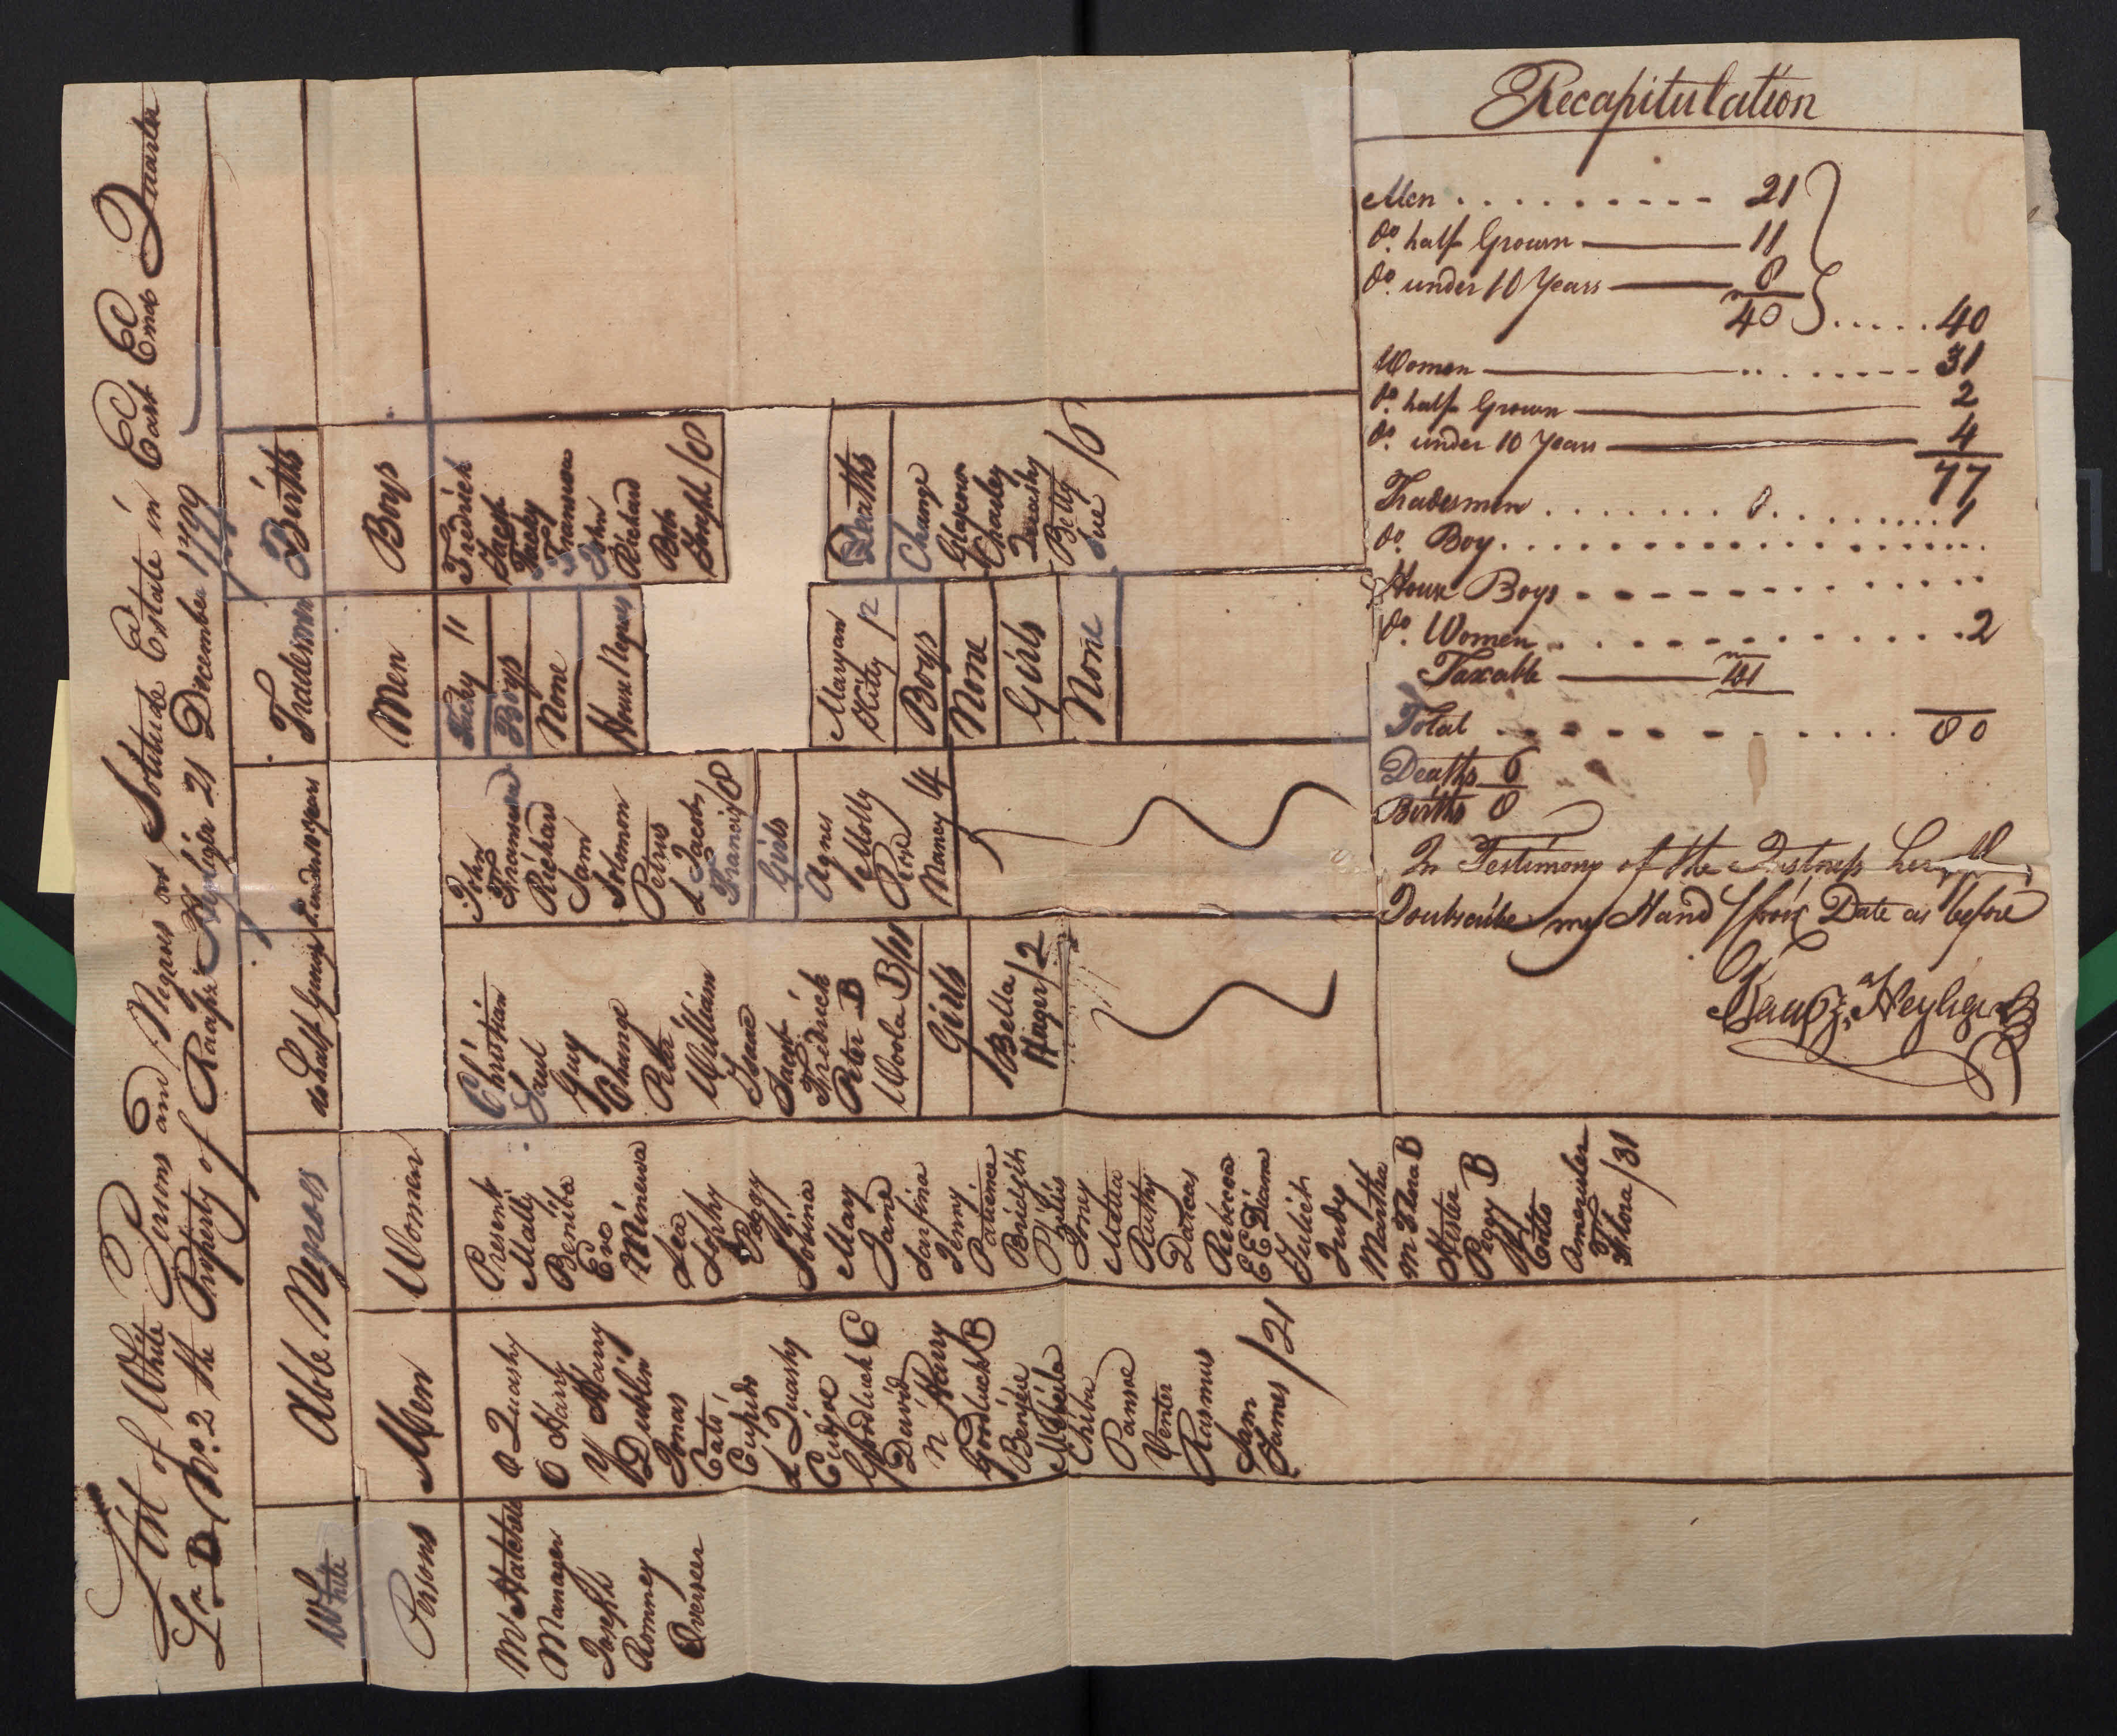 List of White Persons and Negroes on Solitude Estate in East End Quarter
Lr. B No. 2 the Property of Raapz Heyliger 21 December 1799
White
Persons
Mr Hatchett
Manager
Joseph
Romney
Overseer
Able Negroes
Men
O Quashy
O Harry
Y Harry
Dublin
Jonas
Cato
Cupido
L Quashy
Cudjoe
Goodluck C
David
N Harry
Goodluck B
Benjève
Chiba
Pansoe
Venter
Rasmus
Sam
James /21
Women
Present
Mally
Beniba
Eve
Minerva
Lea
Sophy
Peggy
Sobina
Mary
Jane
Sarfina
Jenny
Patience
Bridgit
Phillis
Joney
Metta
Ruthy
Darcas
Rebecca
E E Diana
Juliet
Judy
Martha
M Flora B
Hester
Peggy B
Cotto
Flora /31
do half Grown
Christian
Saul
Guy
Change
Peter
William
Isaac
Jacob
Fridrick
Peter B
Woola B /11
Girls
Bella
Hager /2
do under 10 years
John
Franswa
Richard
Sam
Solomon
Petrus
L Jacob
Francis /8
Girls
Agnes
Molly
Rose
Nancy /4
Tradesmen
Men
Tacky 11
Boys
None
House Negroes
Maryan
Kitty /2
Boys
None
Girls
None
Births
Boys
Fredrick
Jacob
Tacky
Franswa
John
Richard
Bob
Joseph /8
Deaths
Change
Glascow
Charley
Quashy
Betty
Sue /6
Recapitulation
Men 21
do half Grown 11
do under 10 Years 8
40 40
Women 31
do half Grown 2
do under 10 Years 4
77
Tradesmen 1
do Boy
House Boys
do Women 2
Taxcable 41
Total 80
Deaths 6
Births 8
In Testimony of the
Soubscribe my Hand Date as before
Heyliger